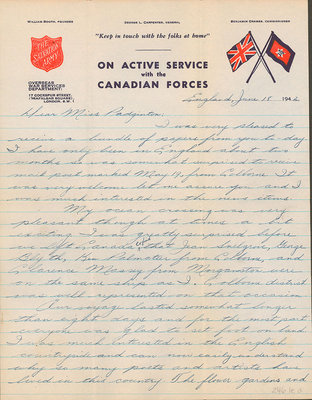 WILLIAM BOOTH, FOUNDER
GEORGE L. CARPENTER, GENERAL
BENJAMIN ORAMES, COMMISSIONER
"Keep in touch with the folks at home"
THE SALVATION ARMY
ON ACTIVE SERVICE
with the
CANADIAN FORCES
OVERSEAS
WAR SERVICES
DEPARTMENT:
17 COCKSPUR STREET,
(TRAFALGAR SQUARE)
LONDON, S.W. 1
England, June 15 1942
Dear Miss Padginton:
I was very pleased to
receive a bundle of papers from you to-day
I have only been in England about two
months so was somewhat surprised to receive
mail post marked May 19, from Colborne. It
was very welcome let me assure you and I
was much interested in the news items.
My ocean crossing was very
pleasant though at times a bit
exciting I was greatly surprised before
we left Canada that Jean
Blyth, Ben Palmateer from Colborne, and
Clarence Massey from Morganston were
on the same ship as I. Colborne district
was well represented on that occasion
Our voyage lasted somewhat longer
than eight days and for the most part
everyone was glad to set foot on land.
I was much interested in the English
countryside and can now easily understand
why so many poets and artists has
lived in this country The flower gardens and